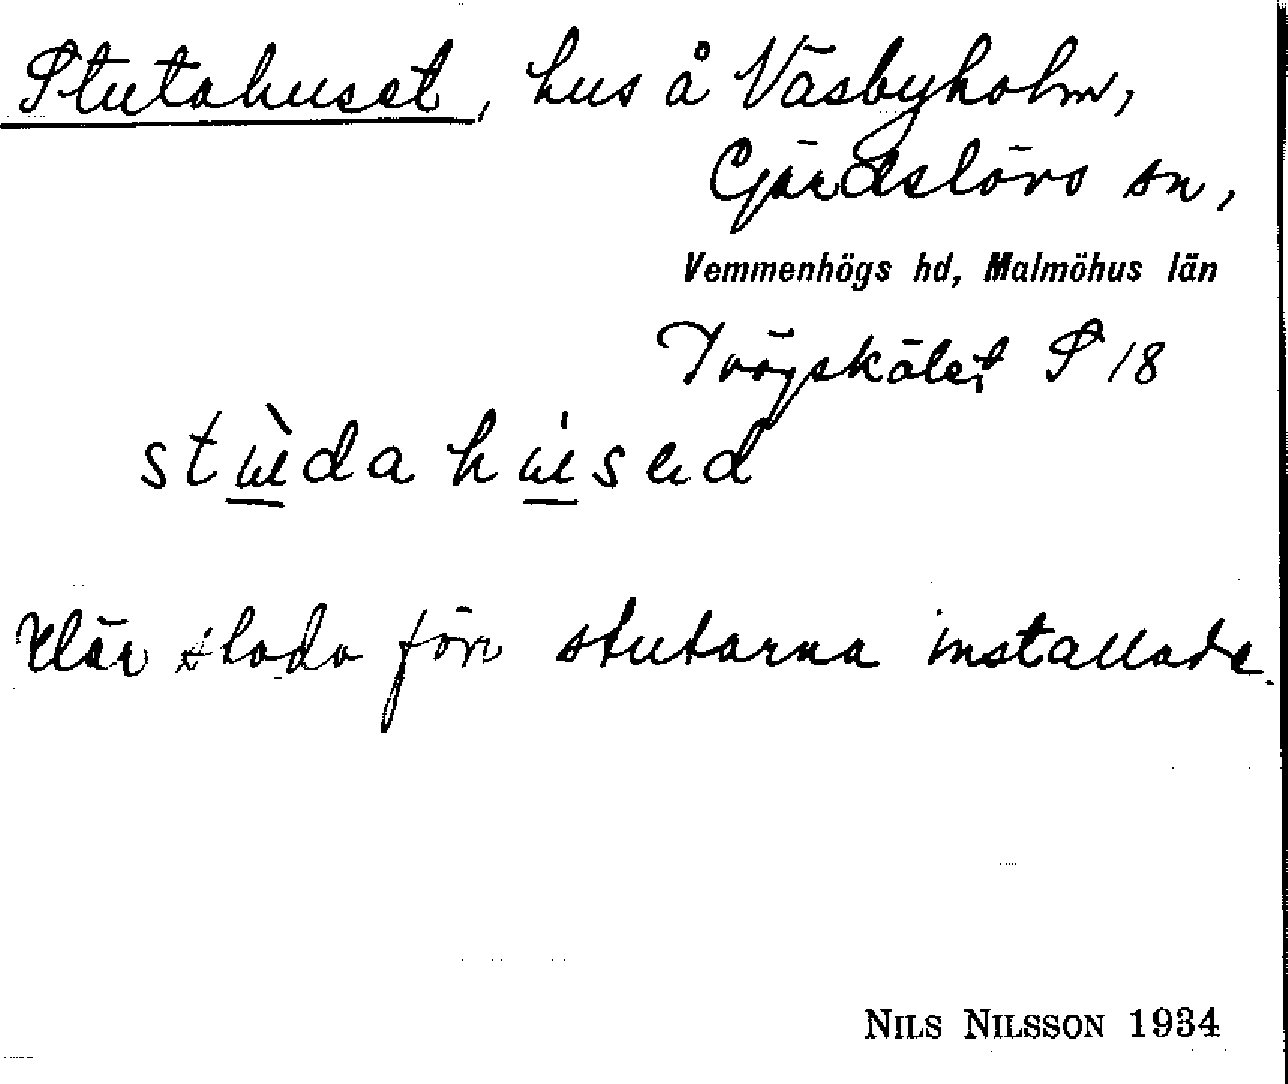 Stutahuset, hus å Väsbyholm,
Gärdslövs sn,
Vemmenhögs hd, Malmöhus län
S 18
stu̲da hu̲səd
Här stodo förr stutarna installade.
NILS NILSSON 1934